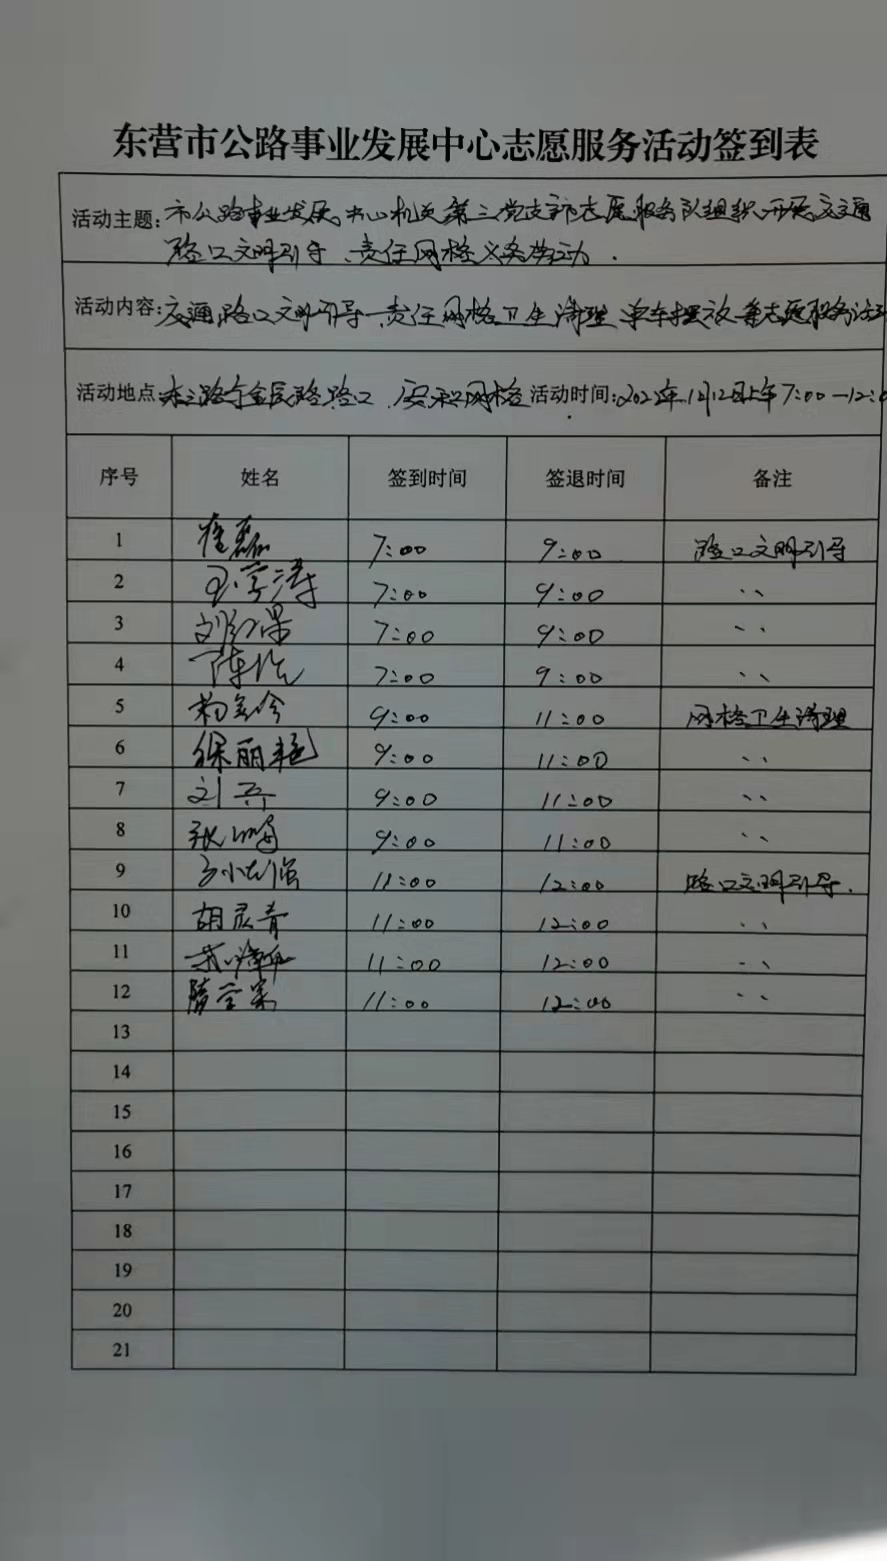 东营市公路事业发展中心志愿服务活动签到表
活动主题: 市公路事业发展中心机关第三党支部志愿服务队组织开展交通
路口文明引导、责任网格义务劳动.
活动内容: 交通路口文明引导 责任网格卫生清理 单车摆放等志愿服务活
活动地点: 路与金辰路路口 网格 活动时间: 12月12日上午7:00—12:0
序号 姓名 签到时间 签退时间 备注
1 崔磊 7:00 9:00 路口文明引导
2 涛 7:00 9:00 、、
3 刘 7:00 9:00 、、
4 陈 7:00 9:00 、、
5 杨 9:00 11:00 网格卫生清理
6 徐丽艳 9:00 11:00 、、
7 刘 9:00 11:00 、、
8 张 9:00 11:00 、、
9 11:00 12:00 路口文明引导.
10 胡灵青 11:00 12:00 、、
11 11:00 12:00 、、
12 11:00 12:00 、、
13
14
15
16
17
18
19
20
21